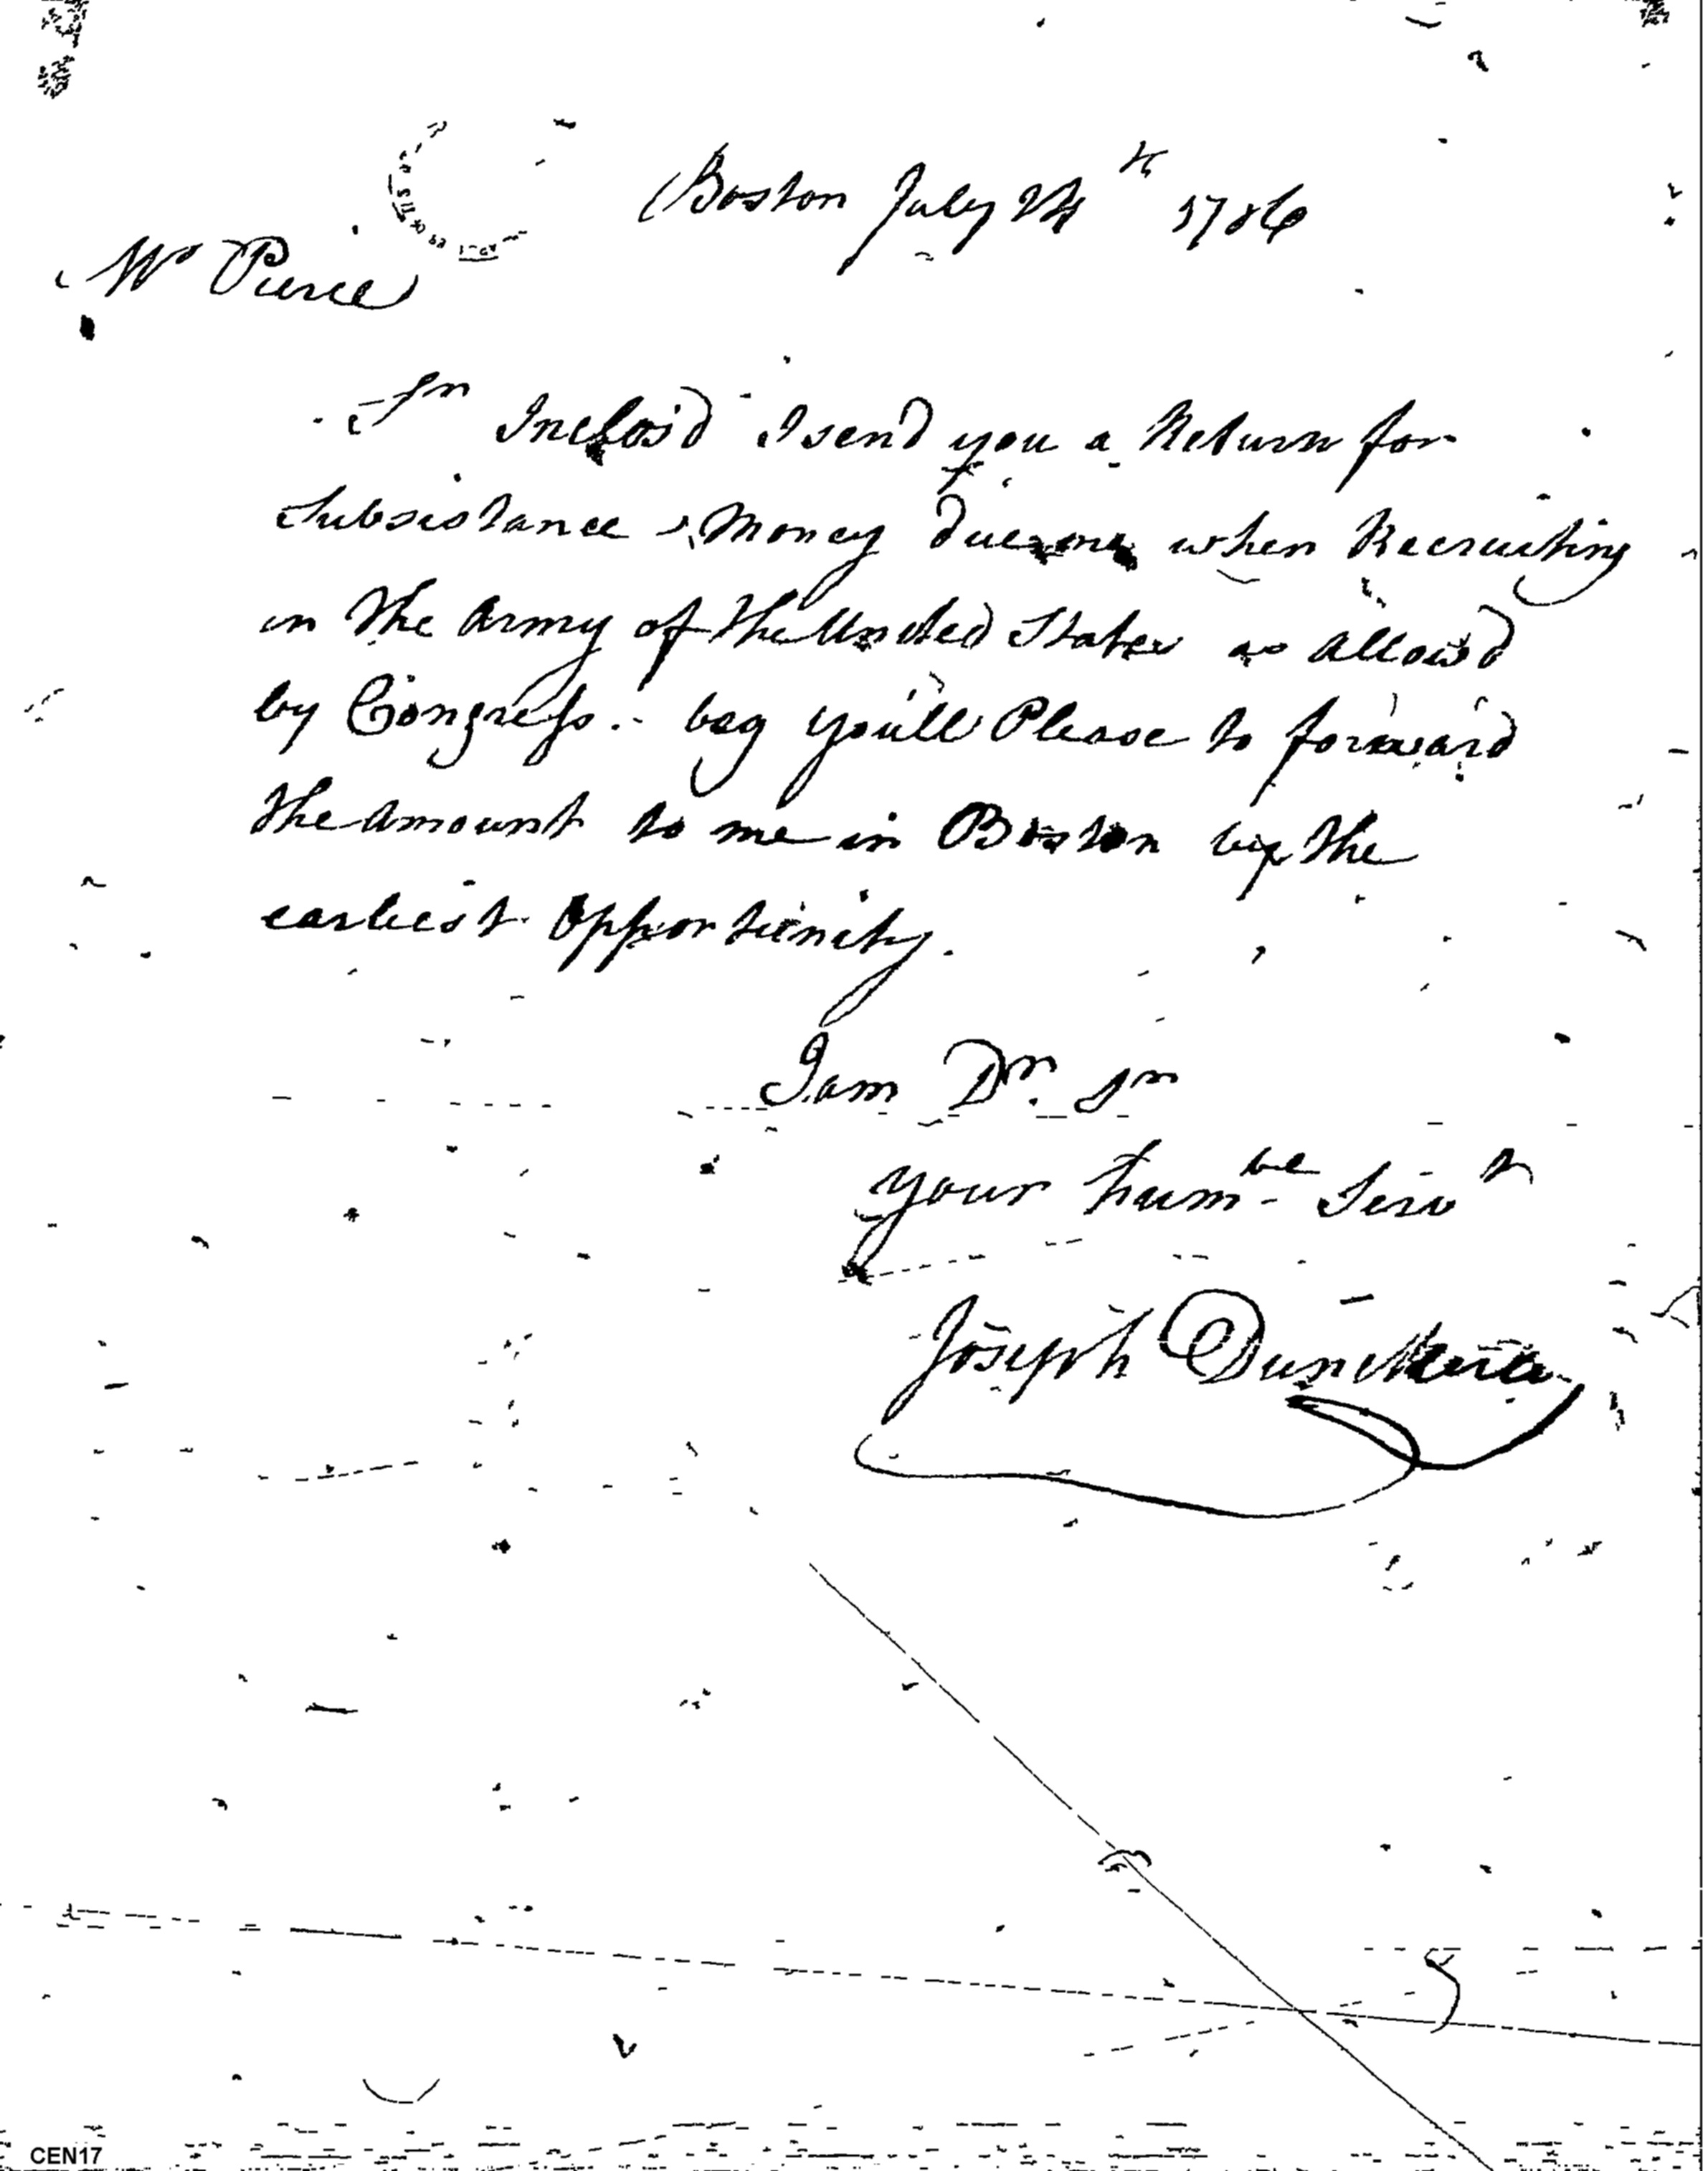 Boston July 24th 1786
Mr Pierce
Sr Inclos'd I send you a Return for
Subsistance & Money due me when Recruiting
in the Army of the United States as allow'd
by Congress. beg you'll Please to forward
the amount to me in Boston by the
earliest Opportunity.
I am Dr. Sr
your humbe Servt
Joseph
CEN17